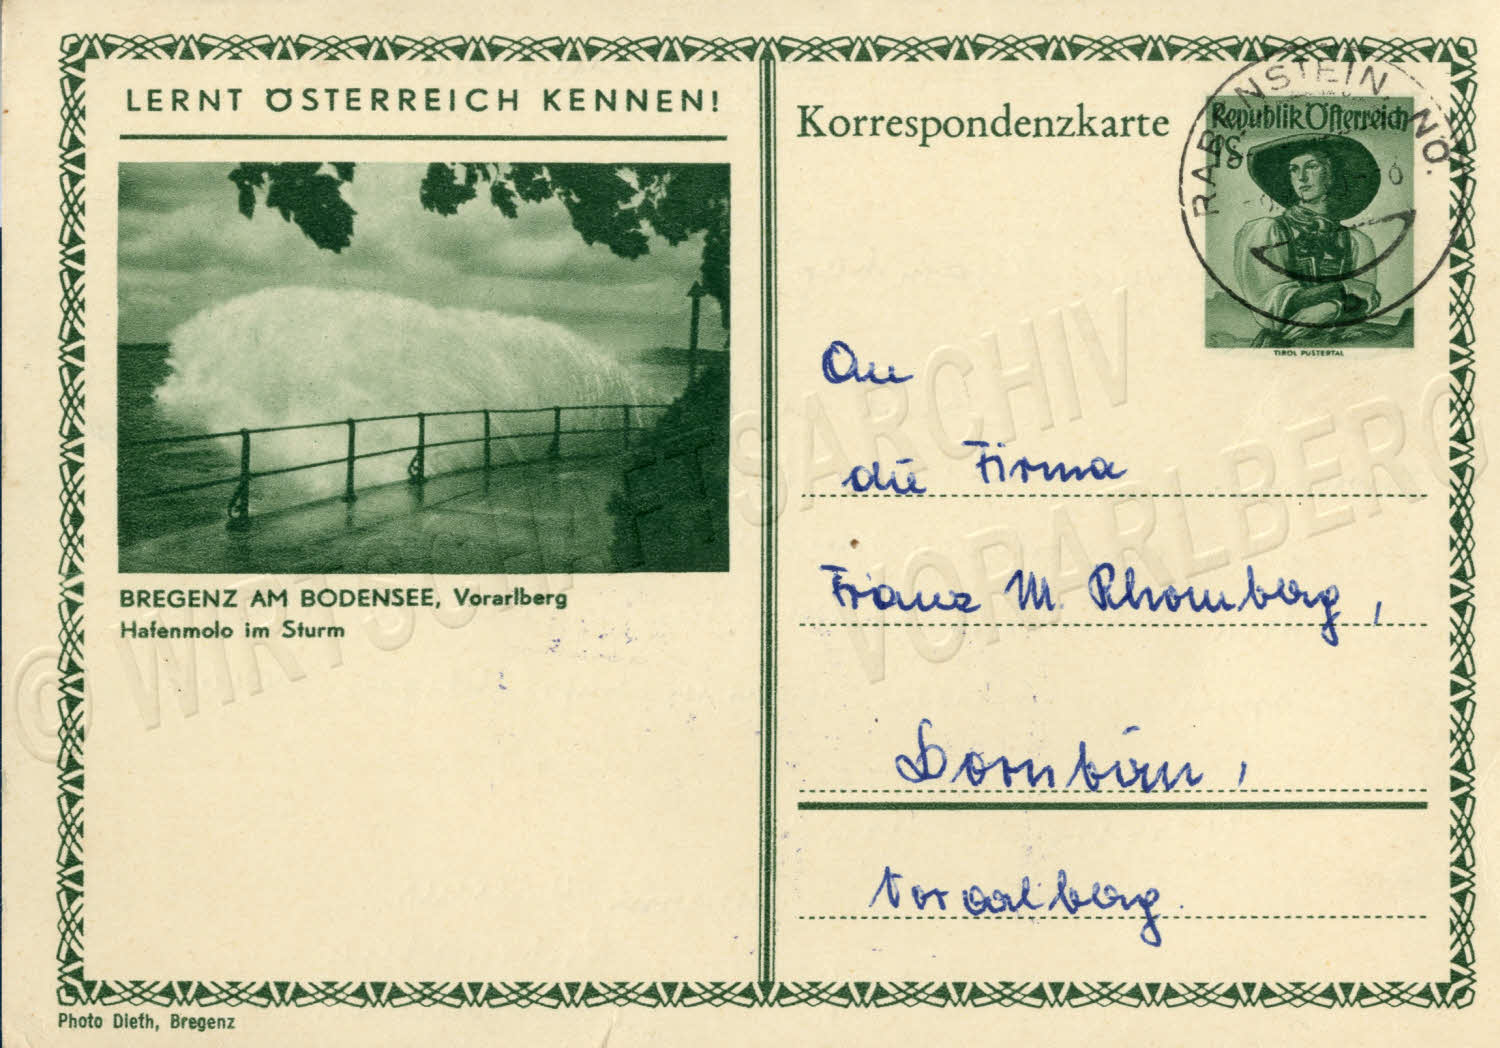 LERNT ÖSTERREICH KENNEN!
BREGENZ AM BODENSEE, Vorarlberg
Hafenmolo im Sturm
Photo Dieth, Bregenz
Korrespondenzkarte
Republik Österreich
1S
TIROL PUSTERTAL
RABENSTEIN, NÖ.
b
An
die Firma
Franz M. Rhomberg,
Dornbirn,
Vorarlberg.
© WIRTSCHAFTSARCHIV
VORARLBERG